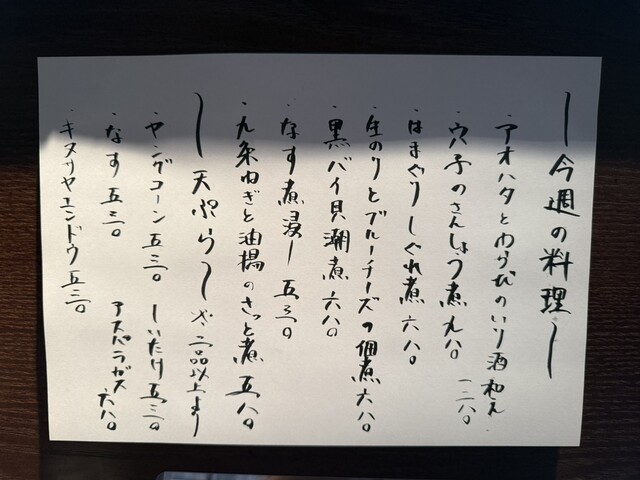 〜今週の料理〜
・アオハタとわらびのいり酒和え 一二八〇
・穴子のさんしょう煮 九八〇
・はまぐりしぐれ煮 六八〇
・生のりとブルーチーズの佃煮 六八〇
・黒バイ貝潮煮 六八〇
・なす煮浸し 五三〇
・九条ねぎと油揚のさっと煮 五八〇
〜天ぷら〜 ※二品以上より
・ヤングコーン 五三〇
・しいたけ 五三〇
・なす 五三〇
アスパラガス 六八〇
・キヌサヤエンドウ 五三〇